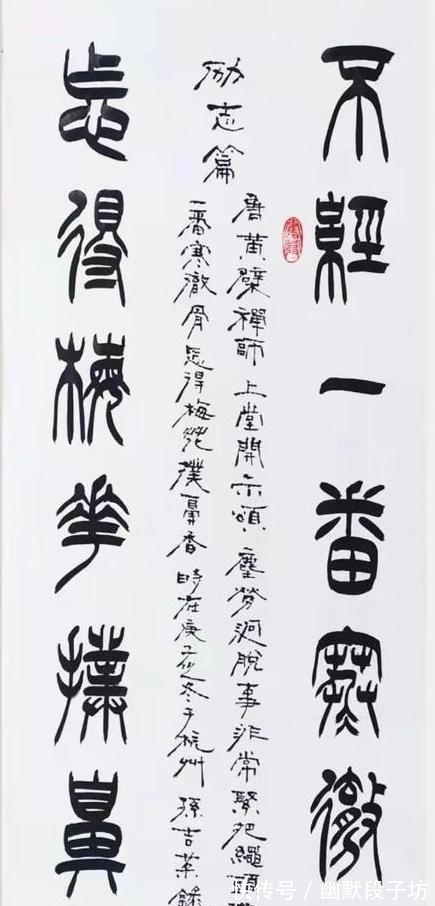 不經一番寒徹
励志篇
唐黄檗禪師上堂開示頌塵勞迥脫事非常緊把繩頭
一番寒徹骨怎得梅花撲鼻香時在庚子冬于杭州孫吉
怎得梅花撲鼻
快传号/幽默段子坊